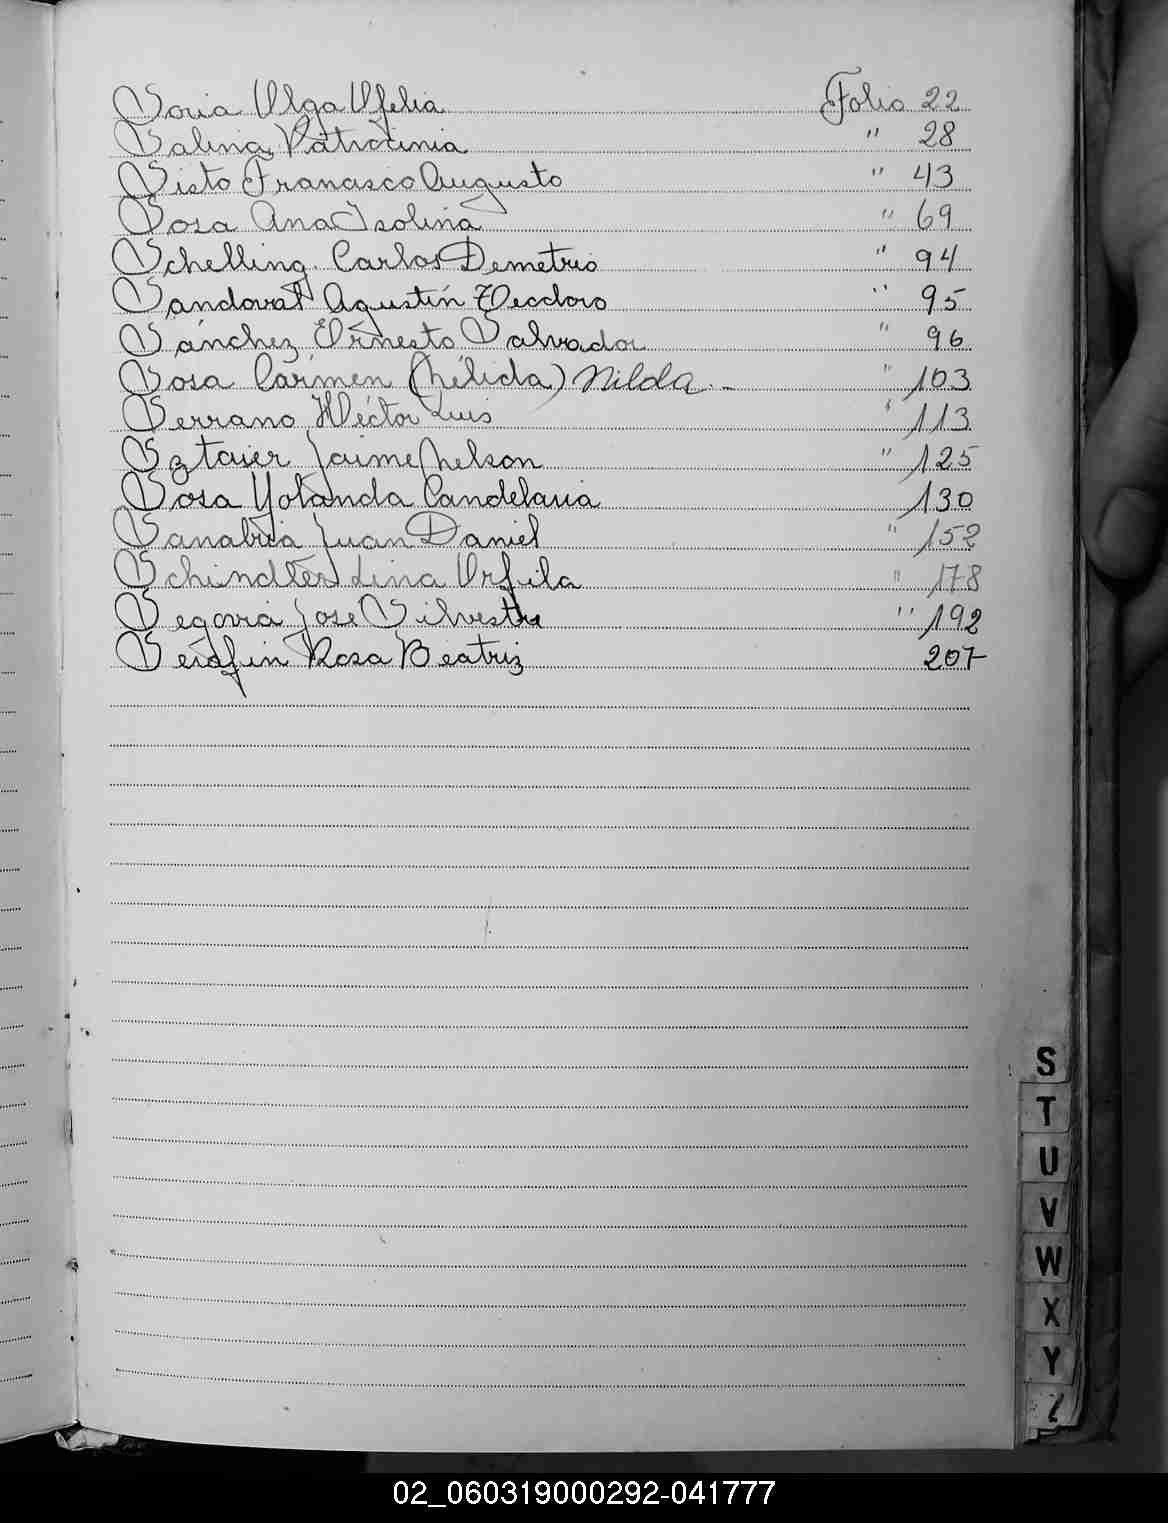 Soria Olga Ofelia Folio 22
Salinas Patrocinia " 28
Sisto Francisco Augusto " 43
Sosa Ana Isolina " 69
Schelling Carlos Demetrio " 94
Sandoval Agustín Teodoro " 95
Sánchez Ernesto Salvador " 96
Sosa Carmen (Nélida) Nilda.- " 103
Serrano Héctor Luis " 113
Sztaier Jaime Nelson " 125
Sosa Yolanda Candelaria 130
Sanabria Juan Daniel " 152
Schindler Lina Orfila " 178
Segovia José Silvestre " 192
Serafin Rosa Beatriz 207
S
T
U
V
W
X
Y
Z
02_060319000292-041777